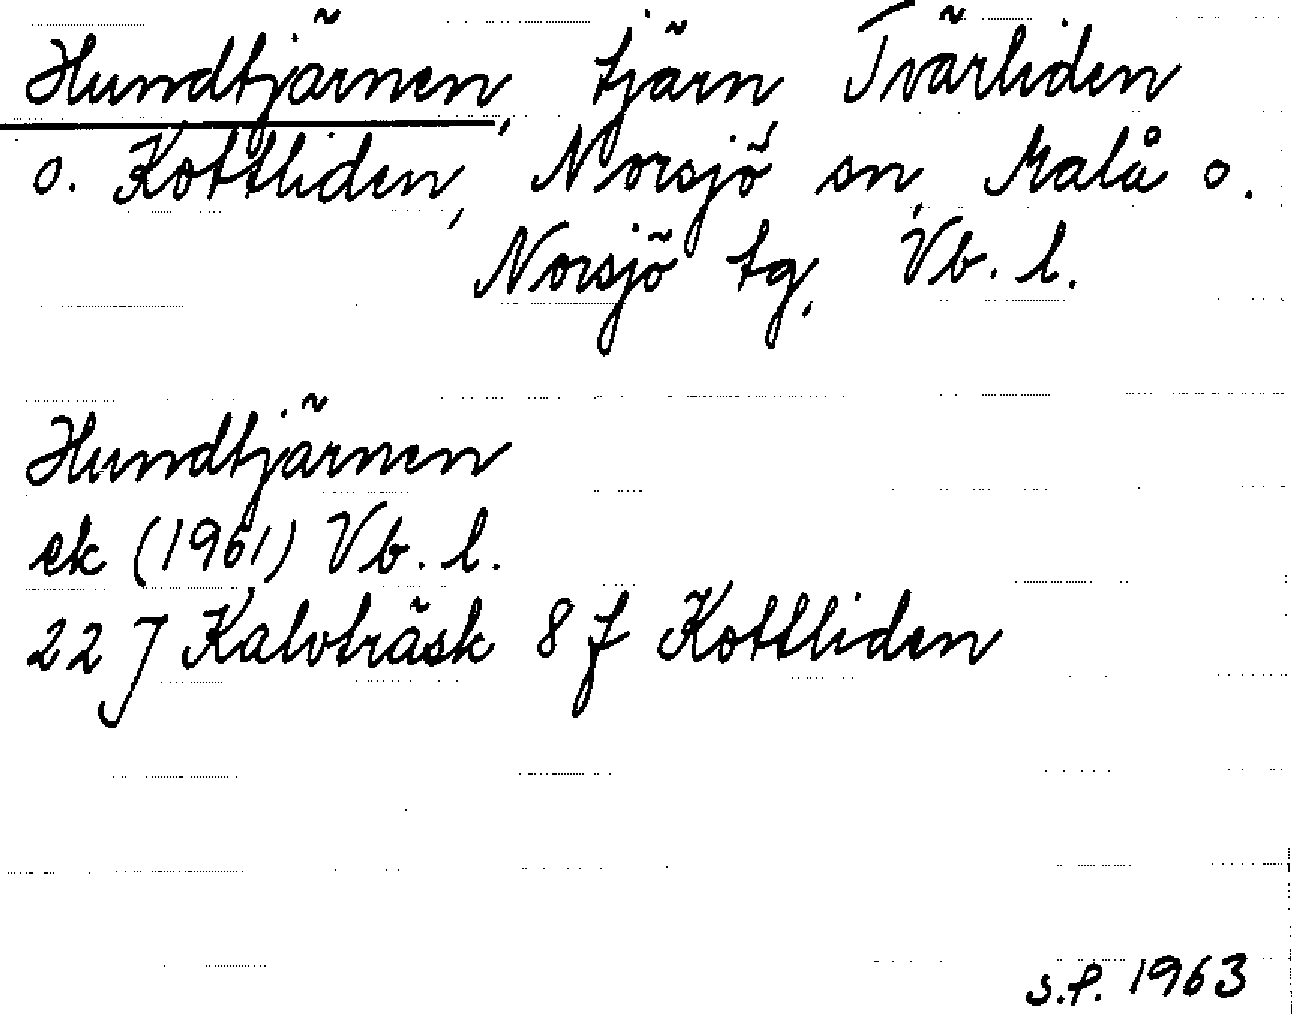 Hundtjärnen, tjärn Tvärliden
o. Kottliden, Norsjö sn, Malå o.
Norsjö tg, Vb. l.
Hundtjärnen
ek (1961) Vb. l.
22 J Kalvträsk 8 f Kottliden
s.f. 1963